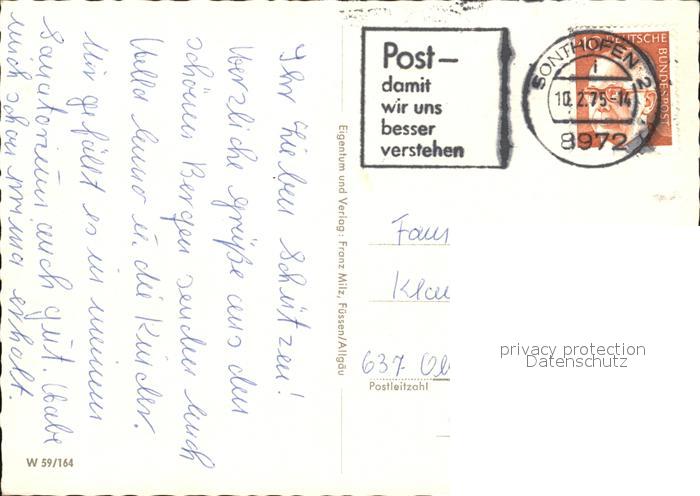 Ihr lieben Schützen!
Herzliche Grüße aus den
schönen Bergen senden Euch
u. die Kinder.
Mir gefällt es in meinem
Sanatorium auch gut. Habe
mich schon prima erholt.
W 59/164
Eigentum und Verlag: Franz Milz, Füssen/Allgäu
Post—
damit
wir uns
besser
verstehen
SONTHOFEN 2
i
10.2.75-14
8972
DEUTSCHE
BUNDESPOST
Fam
Klau
637 Ob
Postleitzahl
privacy protection
Datenschutz